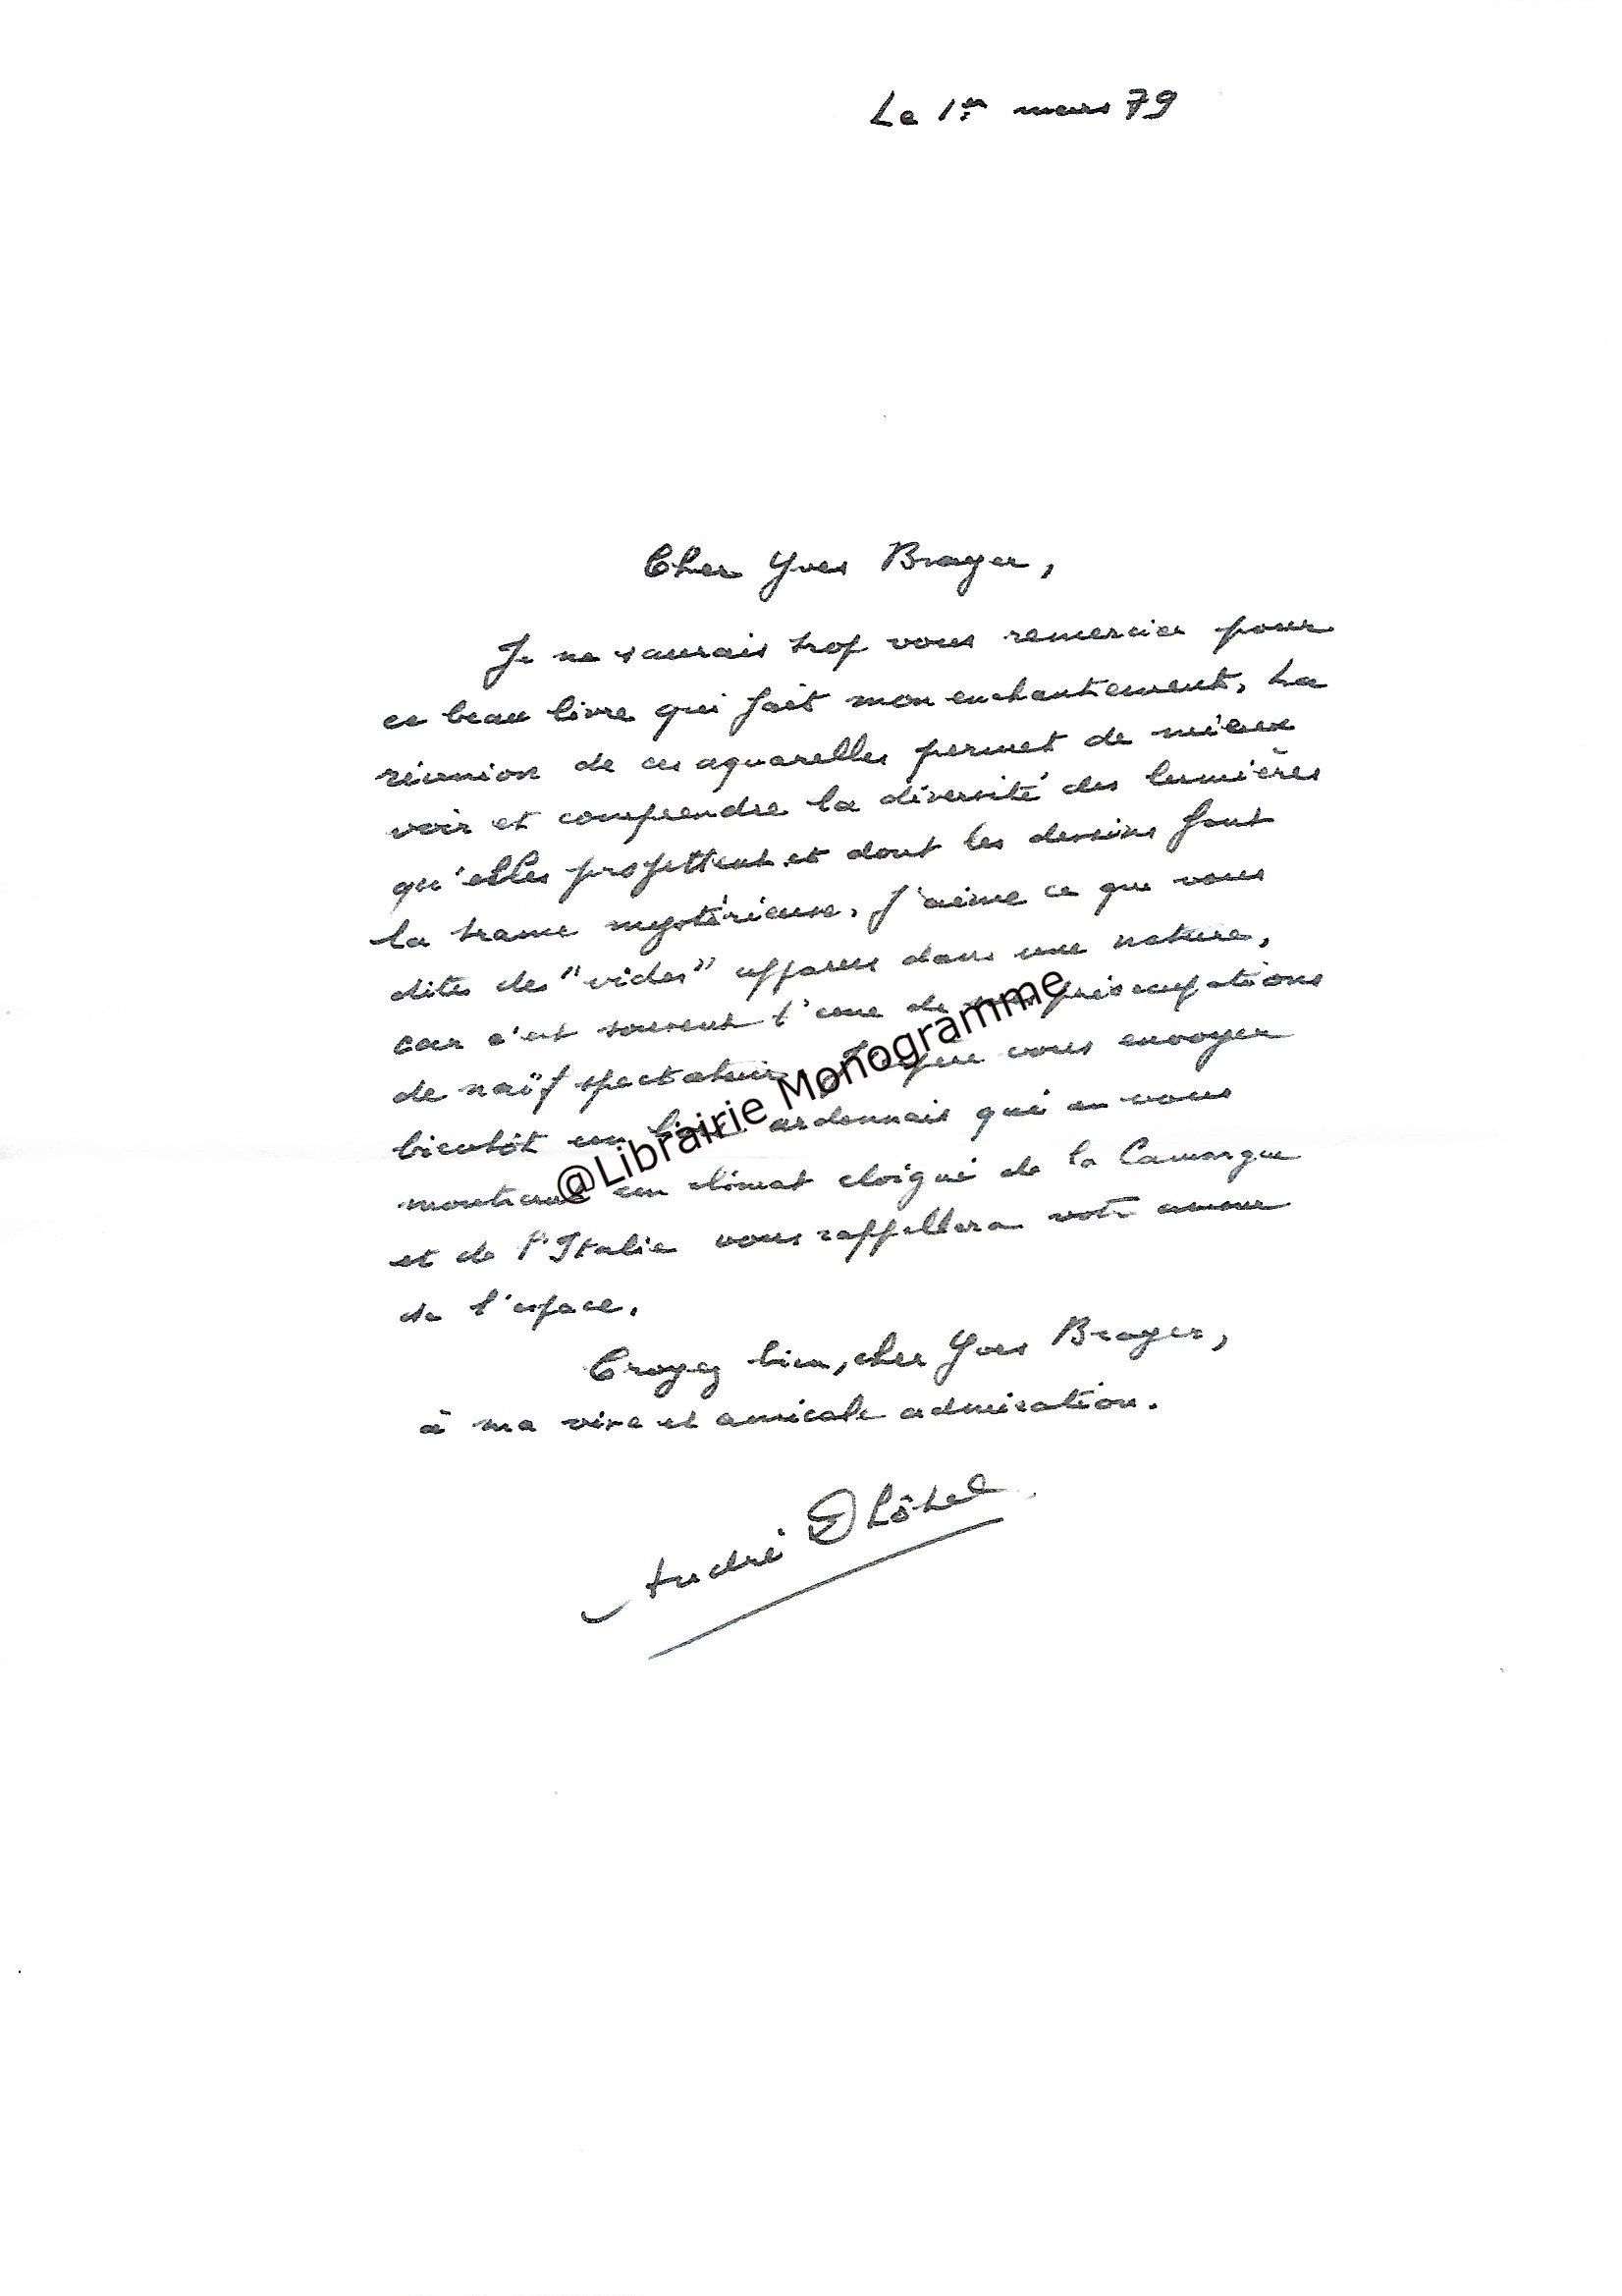 Le 1er mars 79
Cher Yves Brayer,
Je ne saurais trop vous remercier pour
ce beau livre qui fait mon enchantement. La
réunion de ces aquarelles permet de mieux
voir et comprendre la diversité des lumières
qu'elles projettent et dont les dessins font
la trame mystérieuse. J'aime ce que vous
dites des "vides" apparus dans une nature,
car c'est souvent l'une de mes préoccupations
de naïf spectateur. J'espère vous envoyer
bientôt un livre ardennais qui en vous
montrant un climat éloigné de la Camargue
et de l'Italie vous rappellera votre amour
de l'espace.
Croyez bien, cher Yves Brayer,
à ma vive et amicale admiration.
André Dhôtel
@Librairie Monogramme